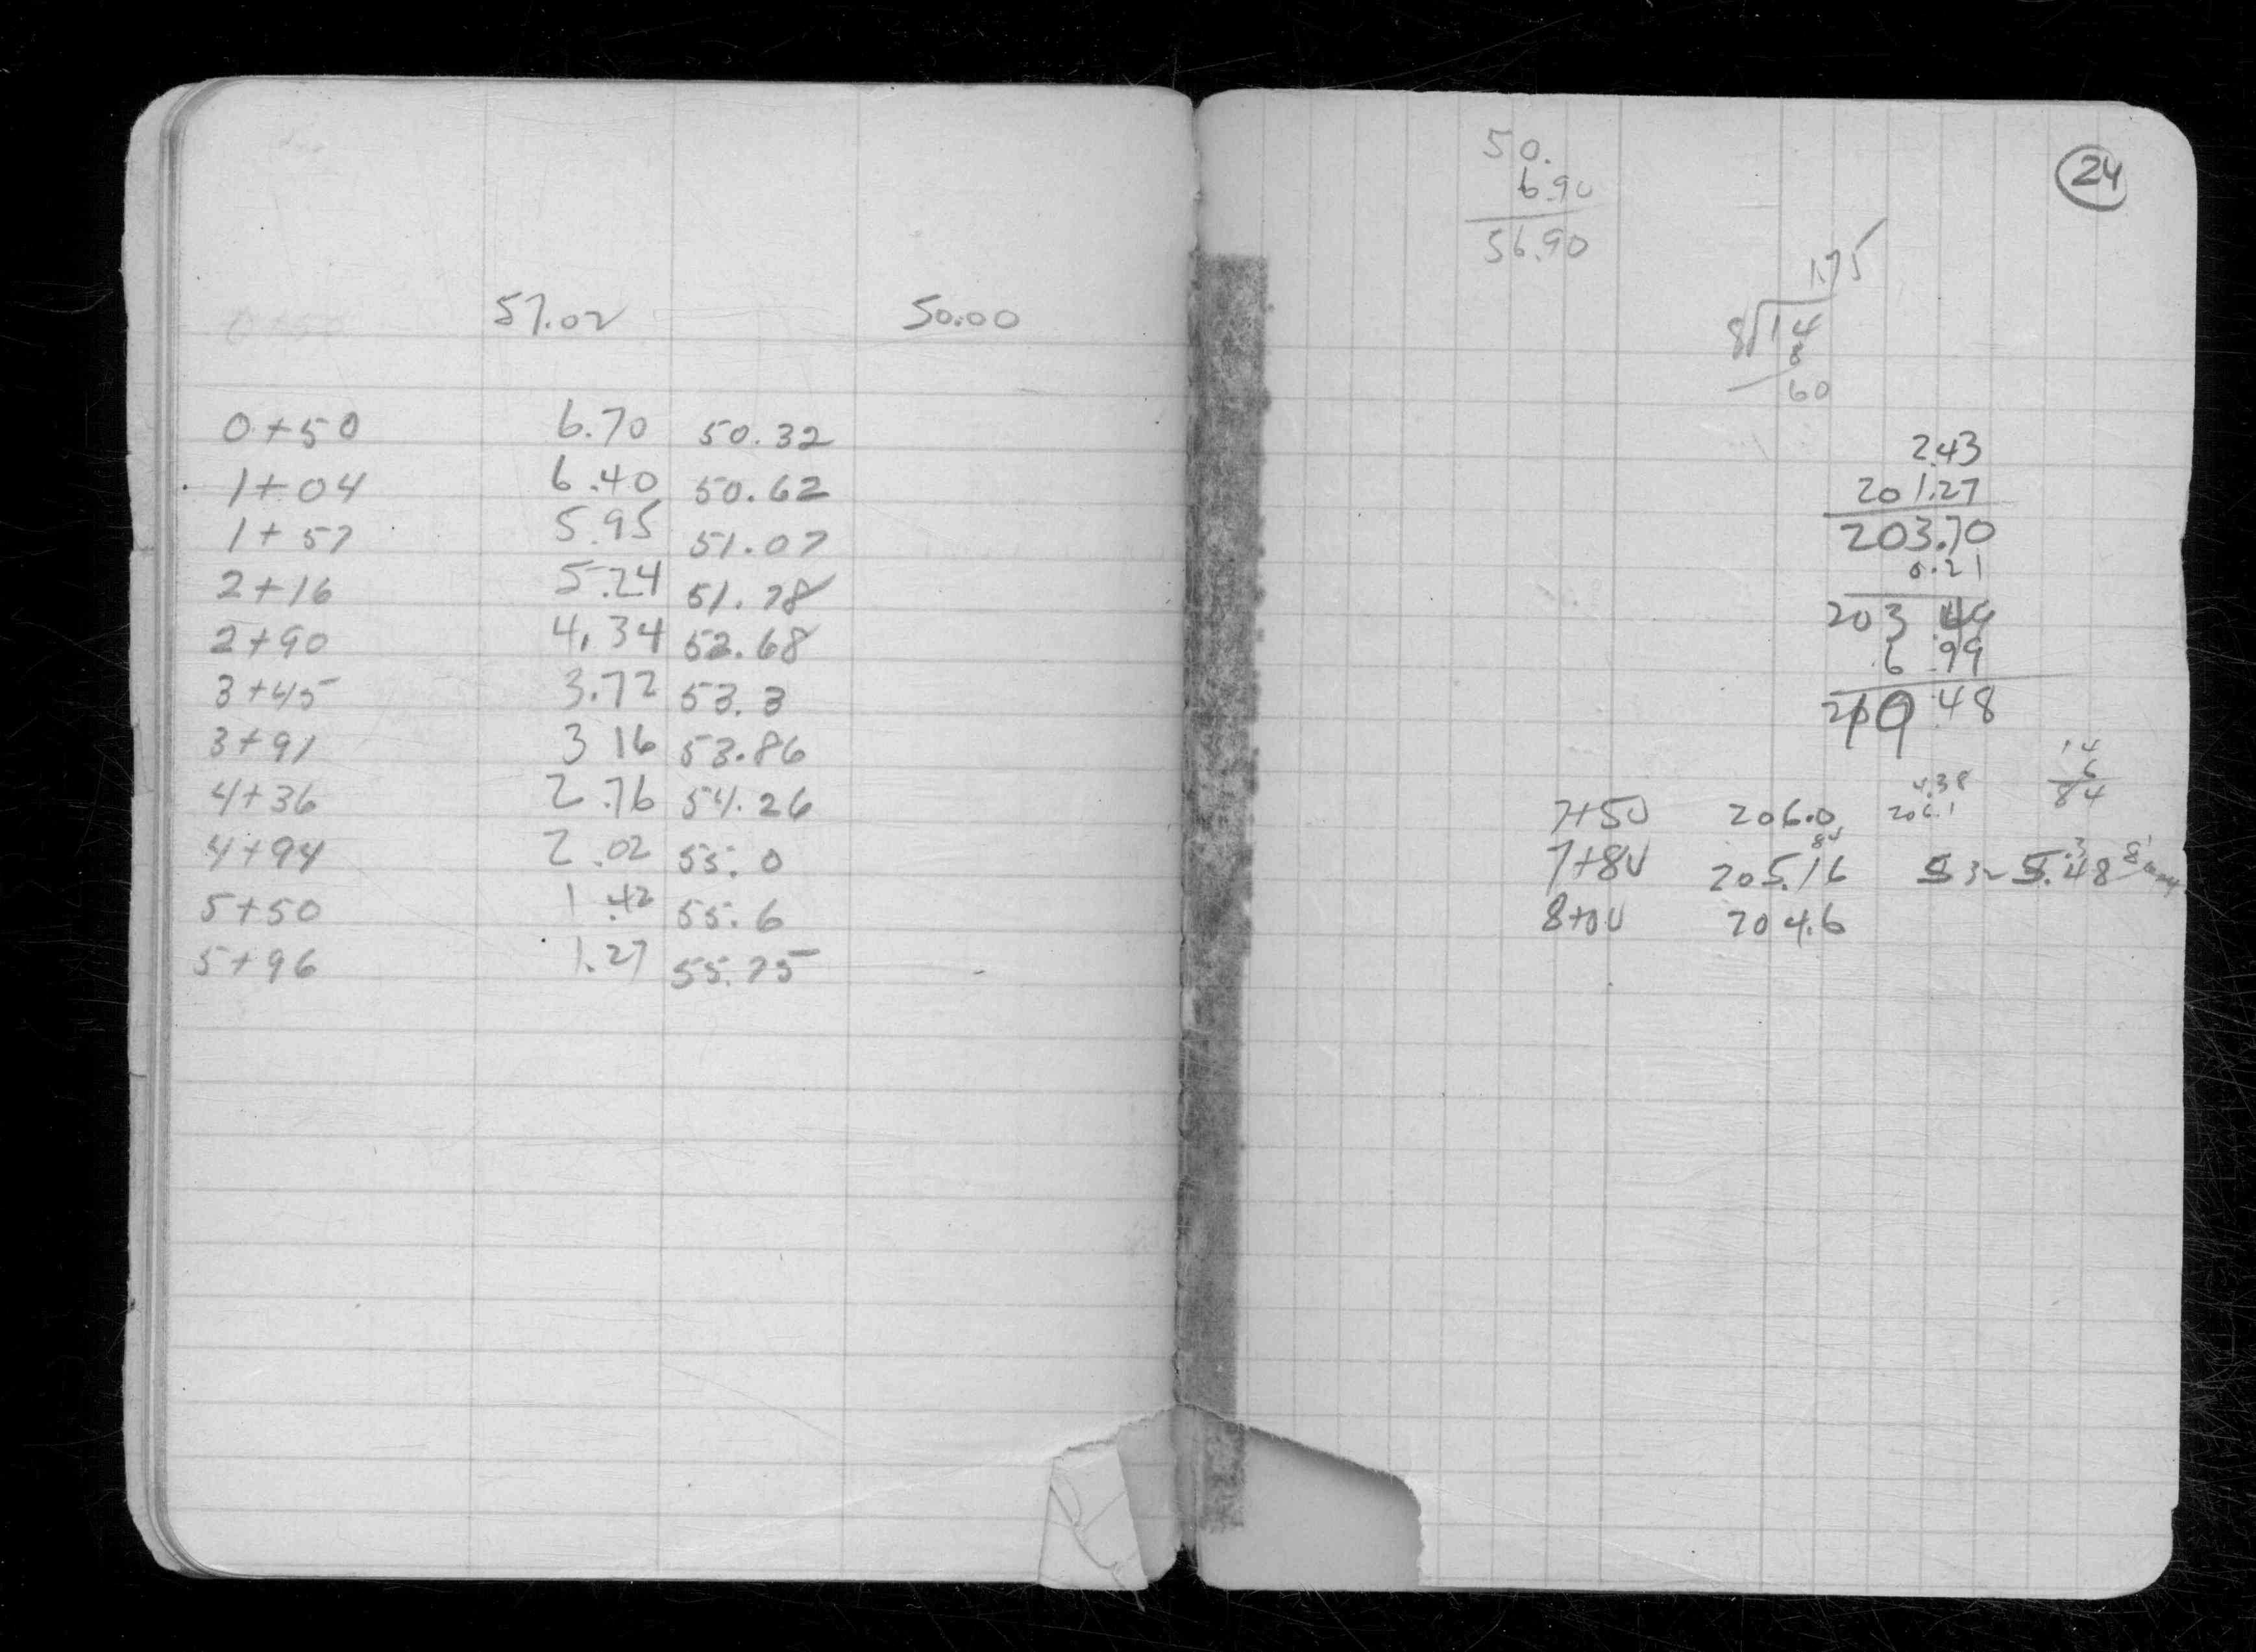 57.02 50.00
0+50 6.70 50.32
1+04 6.40 50.62
1+57 5.95 51.07
2+16 5.24 51.78
2+90 4.34 52.68
3+45 3.72 53.3
3+91 3 16 53.86
4+36 2.76 54.26
4+94 2.02 55.0
5+50 1.42 55.6
5+96 1.27 55.75
24
50.
6.90
56.90
1.75
8 14
8
60
2.43
201.27
203.70
0.21
203 49
6 .99
210 .48
14
6
84
4.38
7+50 206.0 206.1
84
7+80 205.16 5.48
8+00 204.6